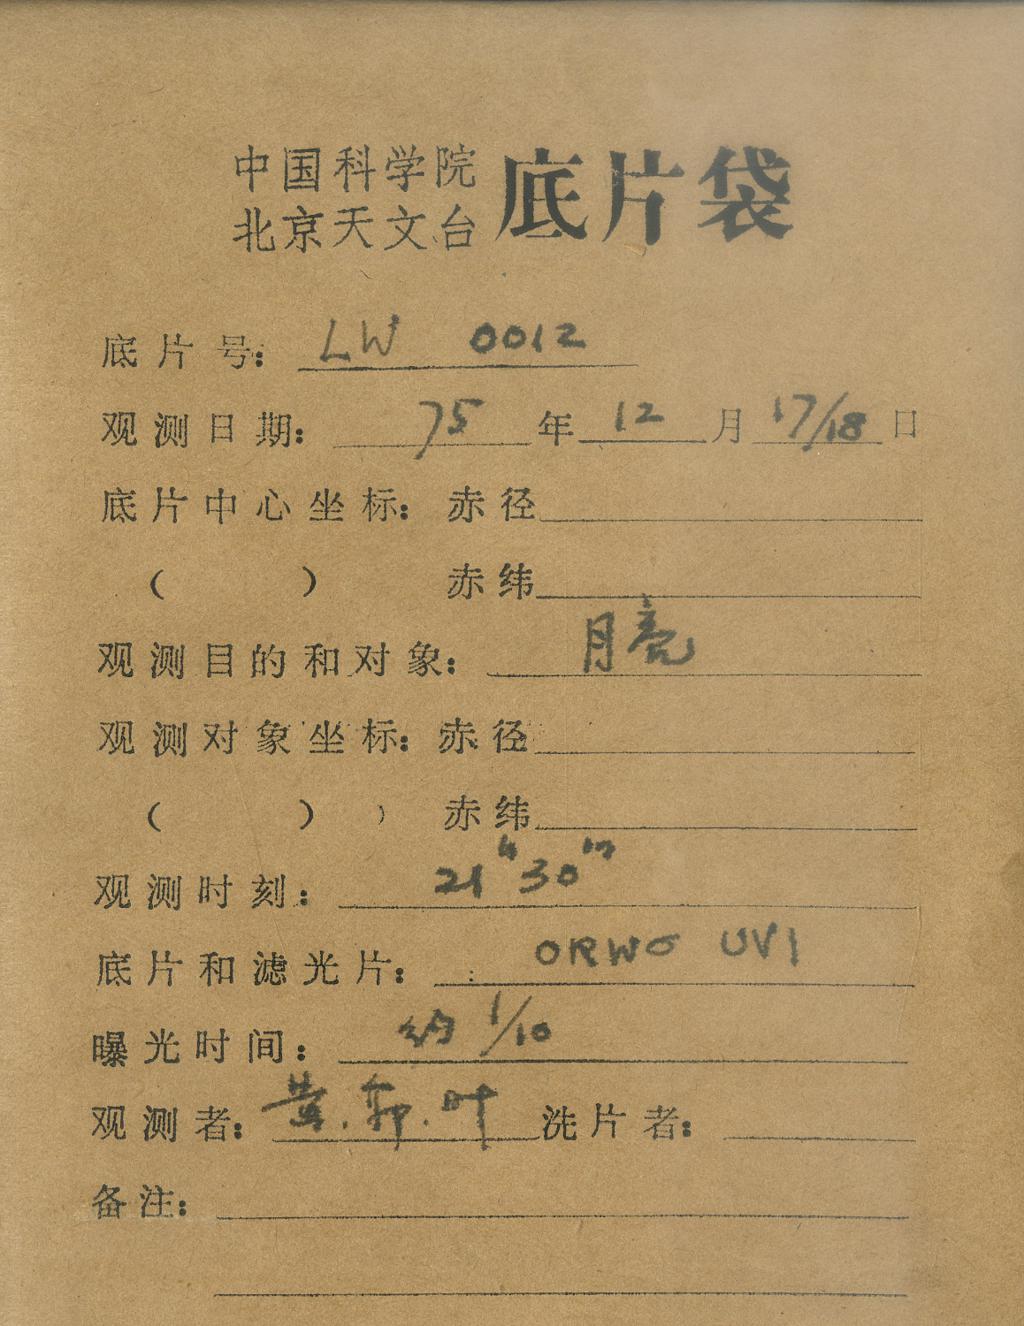 中国科学院
北京天文台 底片袋
底片号: LW 0012
观测日期: 75 年 12 月 17/18 日
底片中心坐标: 赤径
( ) 赤纬
观测目的和对象: 月亮
观测对象坐标: 赤径
( ) 赤纬
观测时刻: 21h30m
底片和滤光片: ORWO UV1
曝光时间: 约 1/10
观测者: 黄.郭.叶 洗片者:
备注: